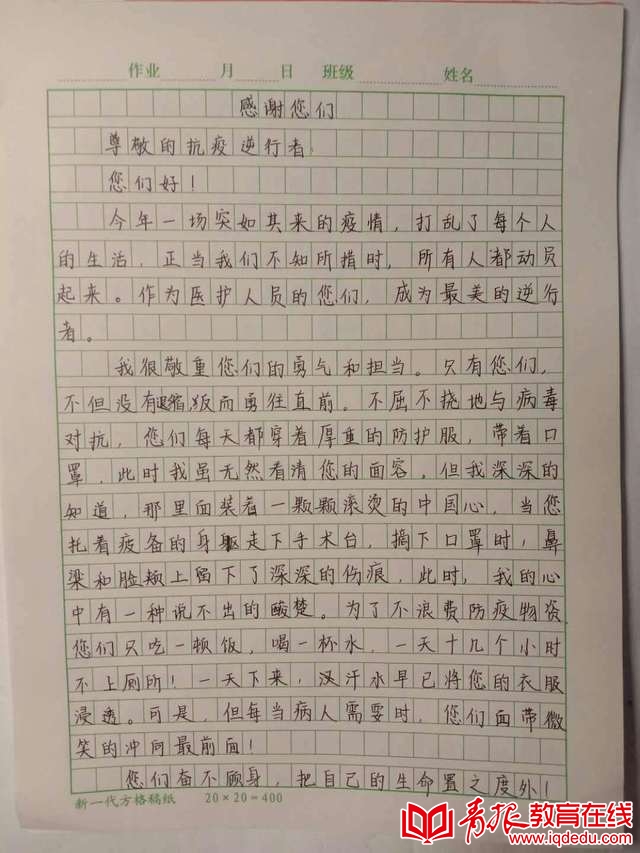 作业 月 日 班级 姓名
感谢您们
尊敬的抗疫逆行者:
您们好!
今年一场突如其来的疫情,打乱了每个人
的生活,正当我们不知所措时,所有人都动员
起来。作为医护人员的您们,成为最美的逆行
者。
我很敬重您们的勇气和担当。只有您们,
不但没有退缩,反而勇往直前。不屈不挠地与病毒
对抗,您们每天都穿着厚重的防护服,带着口
罩,此时我虽无然看清您的面容,但我深深的
知道,那里面装着一颗颗滚烫的中国心,当您
托着疲备的身躯走下手术台,摘下口罩时,鼻
梁和脸颊上留下了深深的伤痕,此时,我的心
中有一种说不出的酸楚。为了不浪费防疫物资
您们只吃一顿饭,喝一杯水,一天十几个小时
不上厕所!一天下来,汉汗水早已将您的衣服
浸透。可是,但每当病人需要时,您们面带微
笑的冲向最前面!
您们奋不顾身,把自己的生命置之度外!
新一代方格稿纸 20×20=400
青报教育在线
www.iqdedu.com